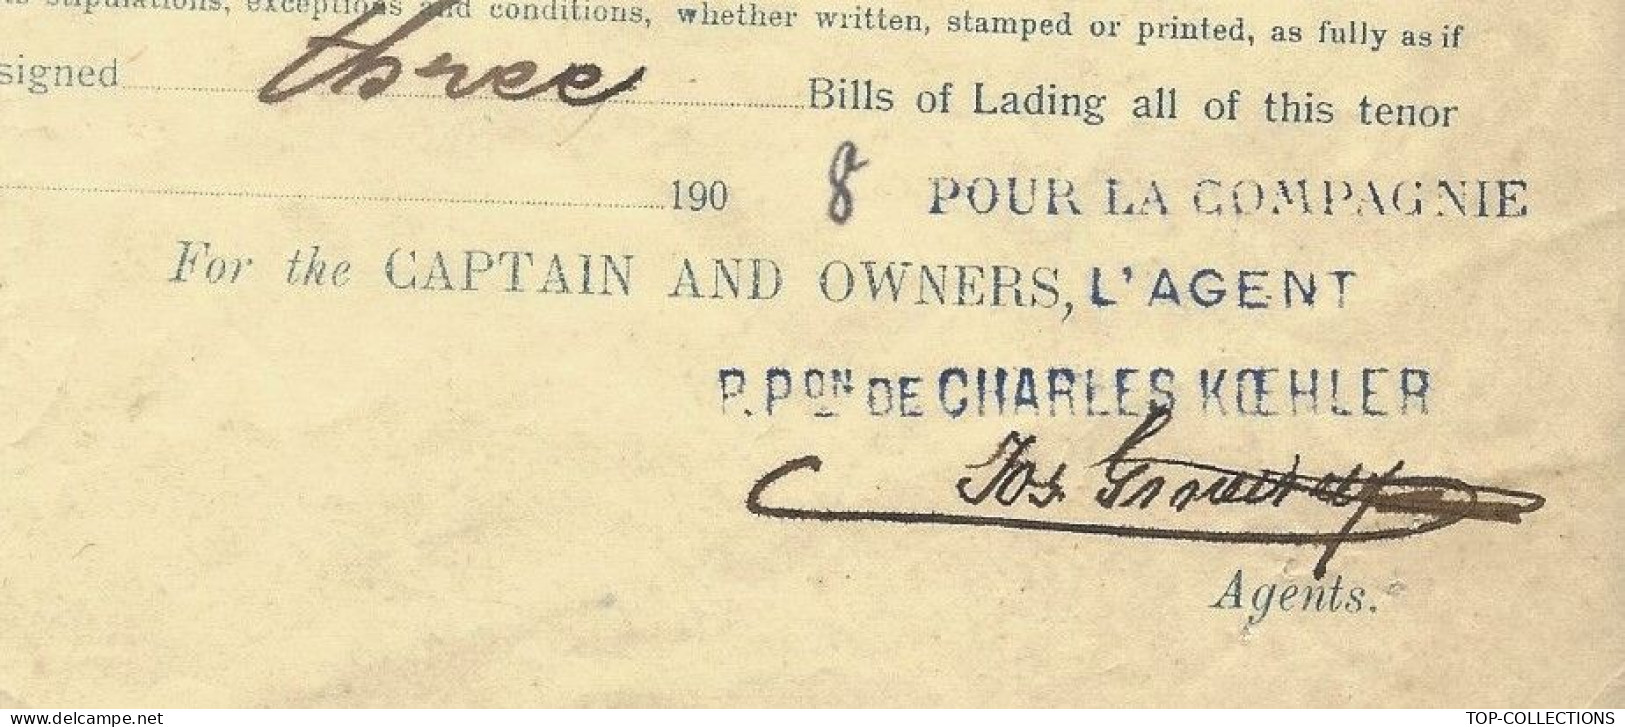 stipulations, exceptions and conditions, whether written, stamped or printed, as fully as if
signed three Bills of Lading all of this tenor
190 8 POUR LA COMPAGNIE
For the CAPTAIN AND OWNERS, L'AGENT
P. PON DE CHARLES KŒHLER
Jos
Agents.
www.delcampe.net
TOP-COLLECTIONS